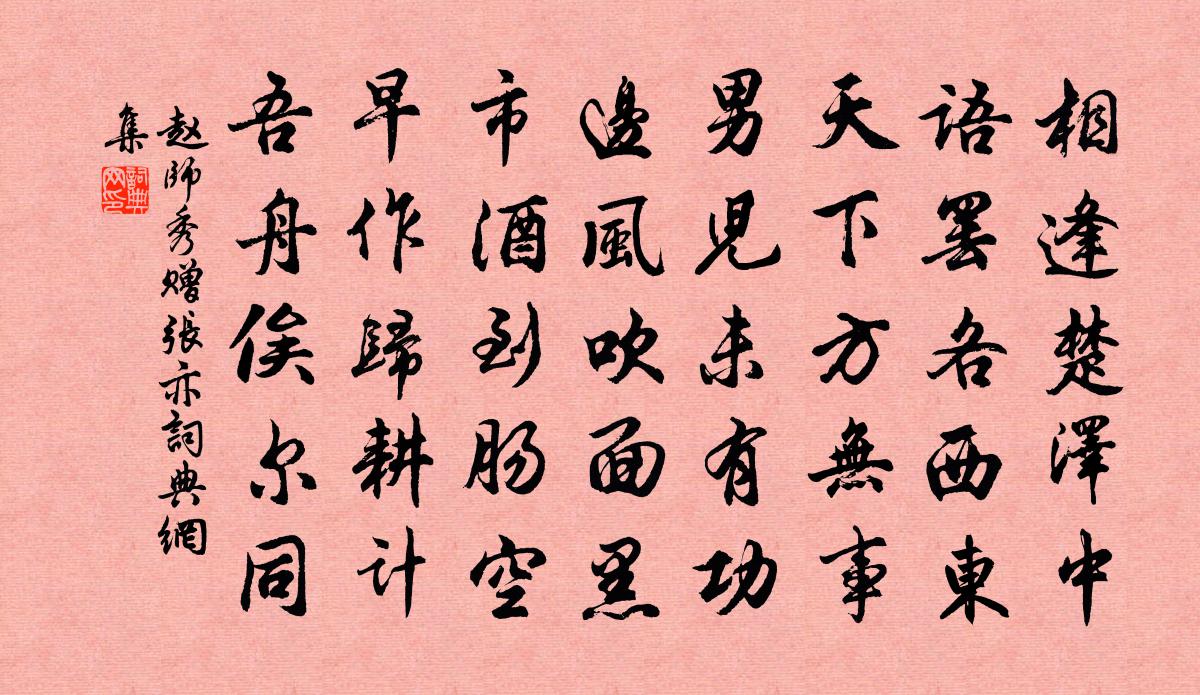 相逢楚澤中
語罢各西東
天下方無事
男児未有功
邊風吹面黑
市酒到肠空
早作歸耕计
吾舟俟尔同
赵師秀贈張亦詞典網
集
詞典网印